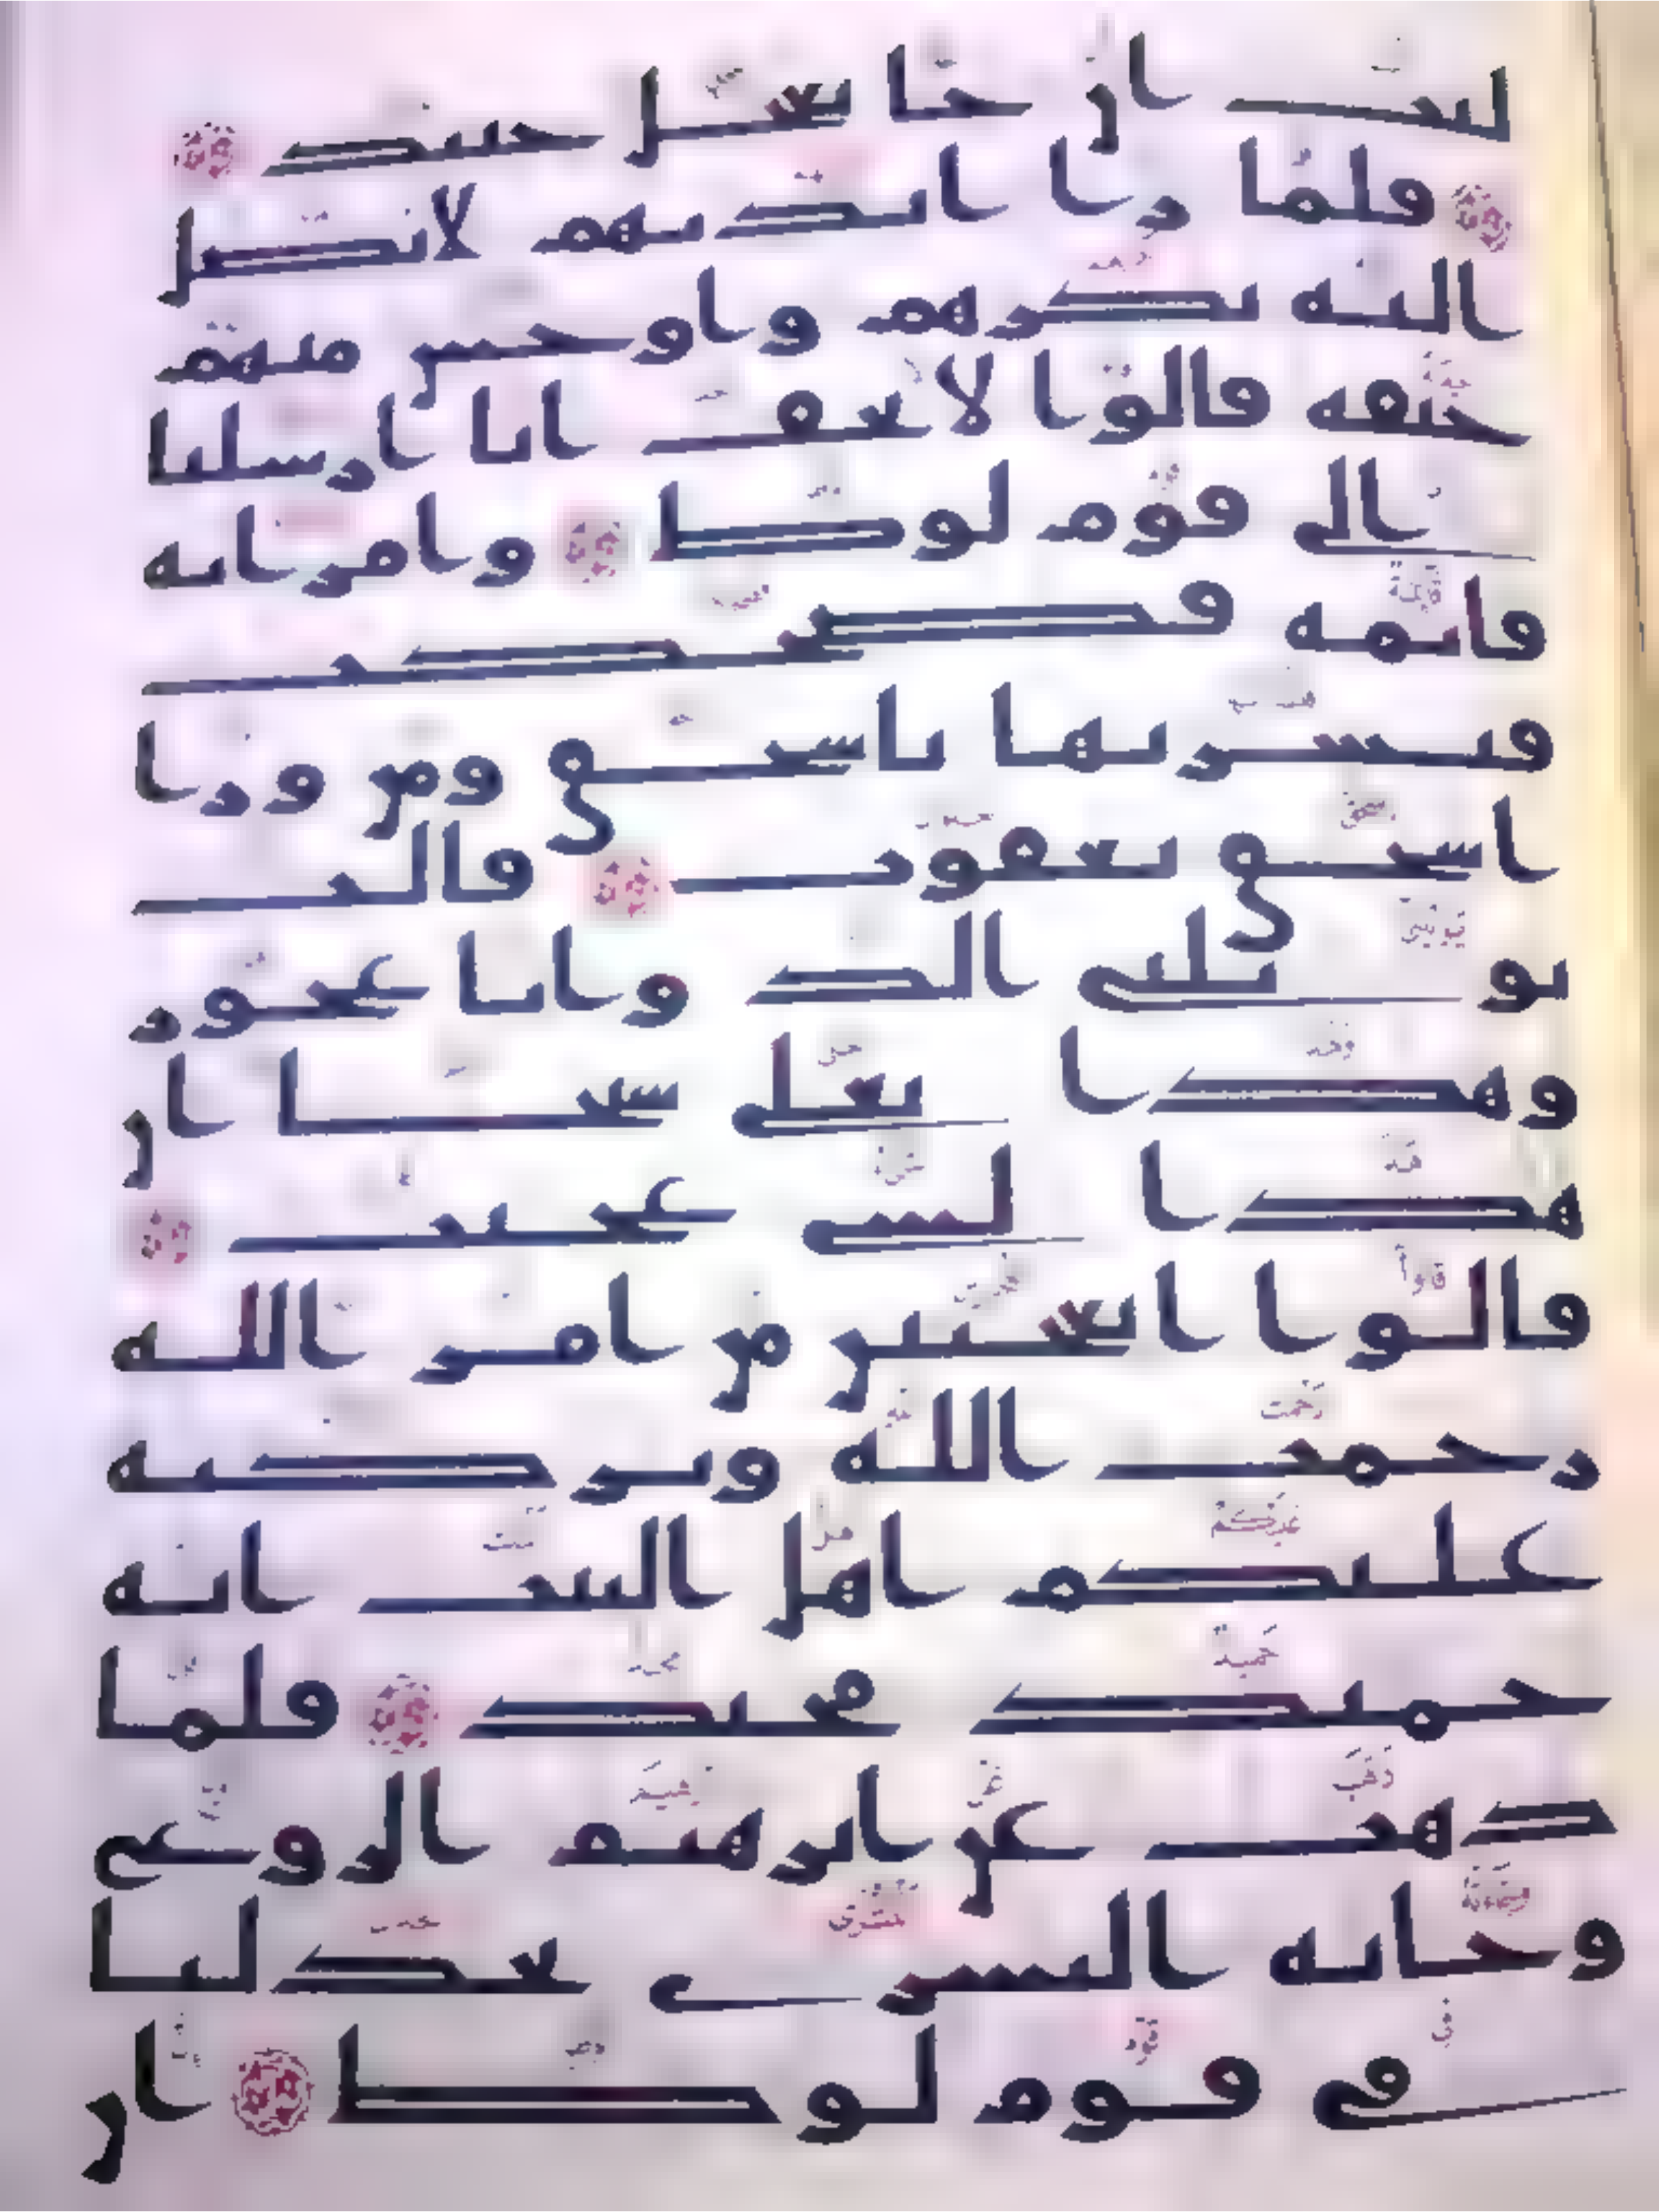 لبث ان جا بعجل حنيذ
فلما را ايديهم لا تصل
اليه نكرهم واوجس منهم
خيفه قالوا لا تخف انا ارسلنا
الى قوم لوط وامراته
قايمه فضحكت
فبشرنها باسحق ومن ورا
اسحق يعقوب قالت
يويلتى الد وانا عجوز
وهذا بعلى شيخا ان
هذا لشى عجيب
قالوا اتعجبين من امر الله
رحمت الله وبركته
عليكم اهل البيت انه
حميد مجيد فلما
ذهب عن ابرهيم الروع
وجاته البشرى يجدلنا
فى قوم لوط ان